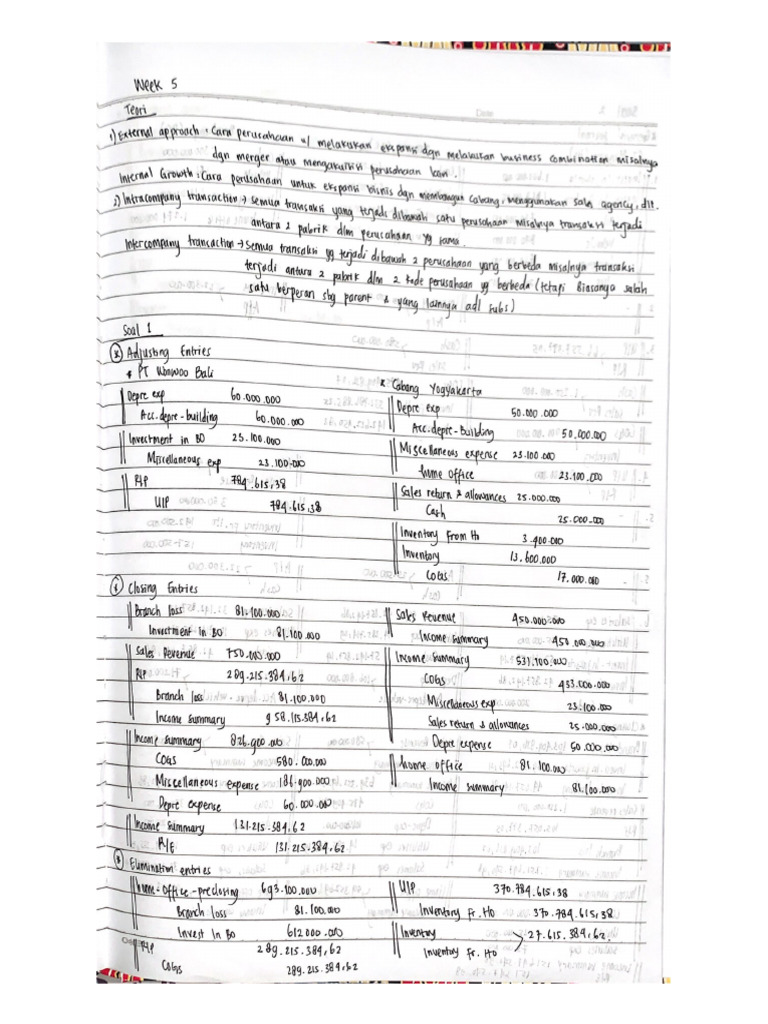 Week 5
Teori
1) External approach : Cara perusahaan u/ melakukan ekspansi dgn melakukan business combination misalnya
dgn merger atau mengakuisisi perusahaan lain.
Internal Growth : Cara perusahaan untuk ekspansi bisnis dgn membangun cabang, menggunakan sales agency, dll.
2) Intracompany transaction → semua transaksi yang terjadi dibawah satu perusahaan misalnya transaksi terjadi
antara 2 pabrik dlm perusahaan yg sama.
Intercompany transaction → semua transaksi yg terjadi dibawah 2 perusahaan yang berbeda misalnya transaksi
terjadi antara 2 pabrik dlm 2 kode perusahaan yg berbeda (tetapi biasanya salah
satu berperan sbg parent & yang lainnya adl subs)
Soal 1
Adjusting Entries
* PT Wonwoo Bali
Depre exp 60.000.000
Acc. depre - building 60.000.000
Investment in BO 23.100.000
Miscellaneous exp 23.100.000
RIP 784.615,38
UIP 784.615,38
* Cabang Yogyakarta
Depre exp 50.000.000
Acc. depre - Building 50.000.000
Miscellaneous expense 23.100.000
home office 23.100.000
Sales return & allowances 25.000.000
Cash 25.000.000
Inventory From Ho 3.400.000
Inventory 13.600.000
COGS 17.000.000
Closing Entries
Branch loss 81.100.000
Investment in BO 81.100.000
Sales Revenue 750.000.000
RIP 289.215.384,62
Branch loss 81.100.000
Income Summary 958.115.384,62
Income Summary 826.900.000
COGS 580.000.000
Miscellaneous expense 186.900.000
Depre expense 60.000.000
Income Summary 131.215.384,62
R/E 131.215.384,62
Sales Revenue 450.000.000
Income Summary 450.000.000
Income Summary 531.100.000
COGS 433.000.000
Miscellaneous exp 23.100.000
Sales return & allowances 25.000.000
Depre expense 50.000.000
home office 81.100.000
Income Summary 81.100.000
Elimination entries
home-Office - preclosing 693.100.000
Branch loss 81.100.000
Invest In BO 612.000.000
RIP 289.215.384,62
COGS 289.215.384,62
UIP 370.784.615,38
Inventory Fr. Ho 370.784.615,38
Inventory > 27.615.384,62
Inventory Fr. Ho